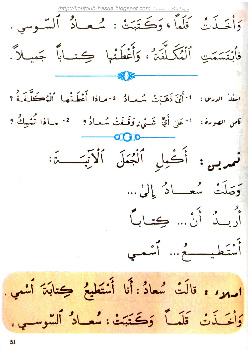 وَأَخَذَتْ قَلَماً، وَكَتَبَتْ : سُعادُ السّوسي.
فَابْتَسَمَتِ الْمُكَلَّفَةُ، وَأَعْطَتْها كِتاباً جَميلاً.
أسئلة الدرس : 1- أَيْنَ ذَهَبَتْ سُعادُ ؟ 2- ماذا أَعْطَتْها الْمُكَلَّفَةُ ؟
1- عَنْ أَيِّ شَيْءٍ وَقَفَتْ سُعادُ ؟ 2- ماذا تُمْسِكُ ؟
تمرين : أَكْمِلِ الْجُمَلَ الْآتِيَةَ :
وَصَلَتْ سُعادُ إِلى...
أُريدُ أَنْ... كِتاباً
أَسْتَطيعُ... اَسْمي
إملاء : قالَتْ سُعادُ : أَنا أَسْتَطيعُ كِتابَةَ اَسْمي.
وَأَخَذَتْ قَلَماً وَكَتَبَتْ : سُعادُ السّوسي.
51